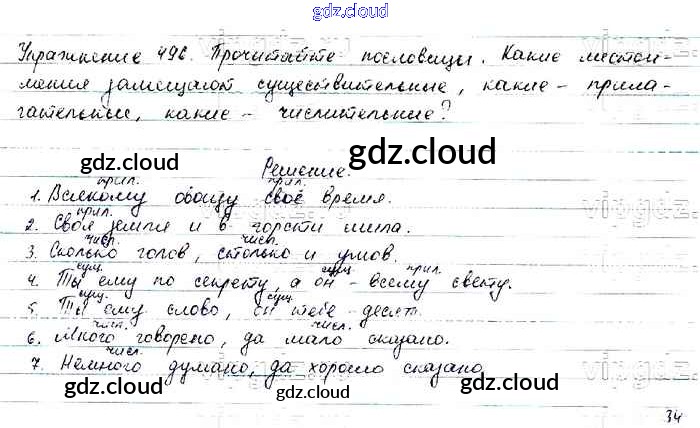 gdz.cloud
Упражнение 496. Прочитайте пословицы. Какие местои-
мения замещают существительные, какие - прила-
гательные, какие - числительные?
gdz.cloud
gdz.cloud
Решение.
прил. прил.
1. Всякому овощу своё время.
прил.
2. Своя земля и в горсти мила.
числ. числ.
3. Сколько голов, столько и умов.
сущ. сущ. прил.
4. Ты ему по секрету, а он - всему свету.
сущ. сущ.
5. Ты ему слово, он тебе - десять.
числ. числ.
6. Много говорено, да мало сказано.
числ.
7. Немного думано, да хорошо сказано.
gdz.cloud gdz.cloud
gdz.cloud
34